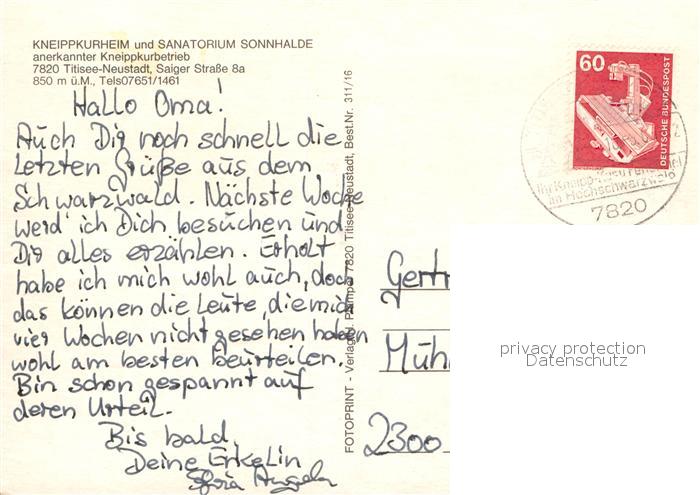 KNEIPPKURHEIM und SANATORIUM SONNHALDE
anerkannter Kneippkurbetrieb
7820 Titisee-Neustadt, Saiger Straße 8a
850 m ü.M., Tels07651/1461
Hallo Oma!
Auch Dir noch schnell die
Letzten Grüße aus dem
Schwarzwald. Nächste Woche
werd ich Dich besuchen und
Dir alles erzählen. Erholt
habe ich mich wohl auch, doch
das können die Leute, die mich
vier Wochen nicht gesehen haben
wohl am besten beurteilen.
Bin schon gespannt auf
deren Urteil.
Bis bald,
Deine Enkelin
Angela
FOTOPRINT - Verlag 7820 Titisee-Neustadt, Best.Nr. 311/16
60
DEUTSCHE BUNDESPOST
Ihr Kneipp-
im Hochschwarzwald
7820
Gertr
Müh
2300
privacy protection
Datenschutz